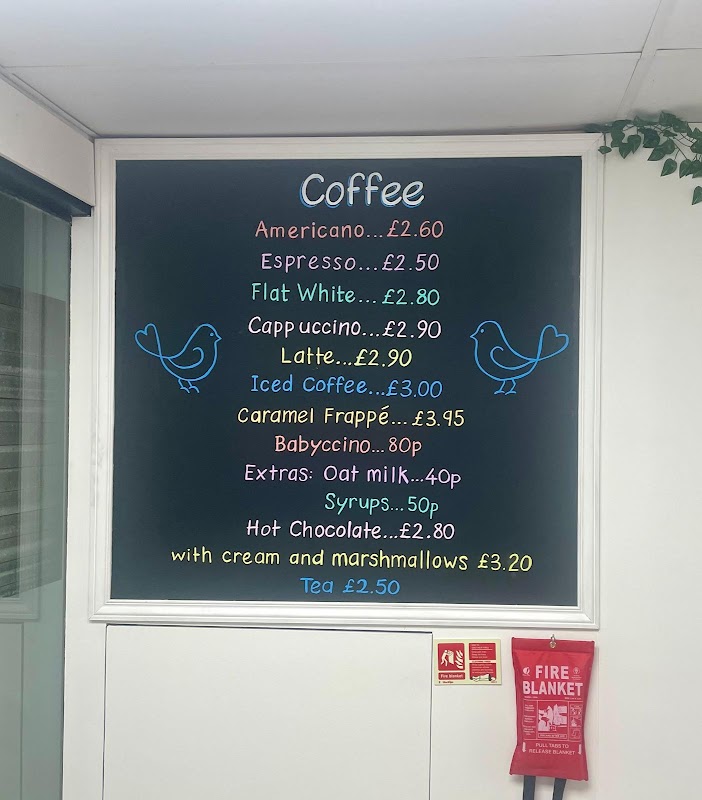 Coffee
Americano...£2.60
Espresso...£2.50
Flat White...£2.80
Cappuccino...£2.90
Latte...£2.90
Iced Coffee...£3.00
Caramel Frappé...£3.95
Babyccino...80p
Extras: Oat milk...40p
Syrups...50p
Hot Chocolate...£2.80
with cream and marshmallows £3.20
Tea £2.50
Fire blanket
FIRE
BLANKET
PULL TABS TO
RELEASE BLANKET